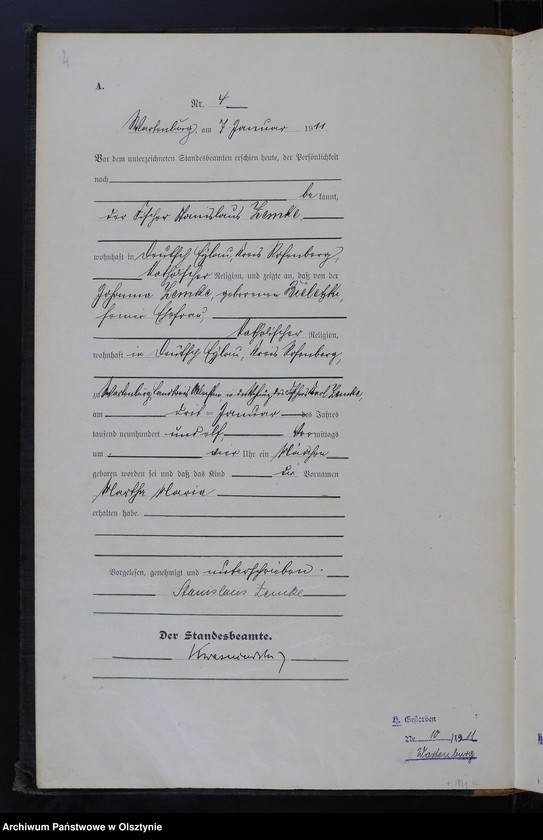 4
A.
Nr. 4
Wartenburg, am 7 Januar 1911.
Vor dem unterzeichneten Standesbeamten erschien heute, der Persönlichkeit
nach
be kannt,
der Fischer Stanislaus Zemke,
wohnhaft in Deutsch Eylau, Kreis Rosenberg,
katholischer Religion, und zeigte an, daß von der
Johanna Zemke, geborenen
seiner Ehefrau,
katholischer Religion,
wohnhaft in Deutsch Eylau, Kreis Rosenberg,
zu Wartenburg, Landkreis Allenstein, in der Behausung des Zemke,
am drei Januar des Jahres
tausend neunhundert und elf, Vormittags
um vier Uhr ein Mädchen
geboren worden sei und daß das Kind die Vornamen
Martha Maria
erhalten habe.
Vorgelesen, genehmigt und unterschrieben.
Stanislaus Zemke
Der Standesbeamte.
H. Gestorben
Nr. 10 /1911
Wartenburg
Archiwum Państwowe w Olsztynie